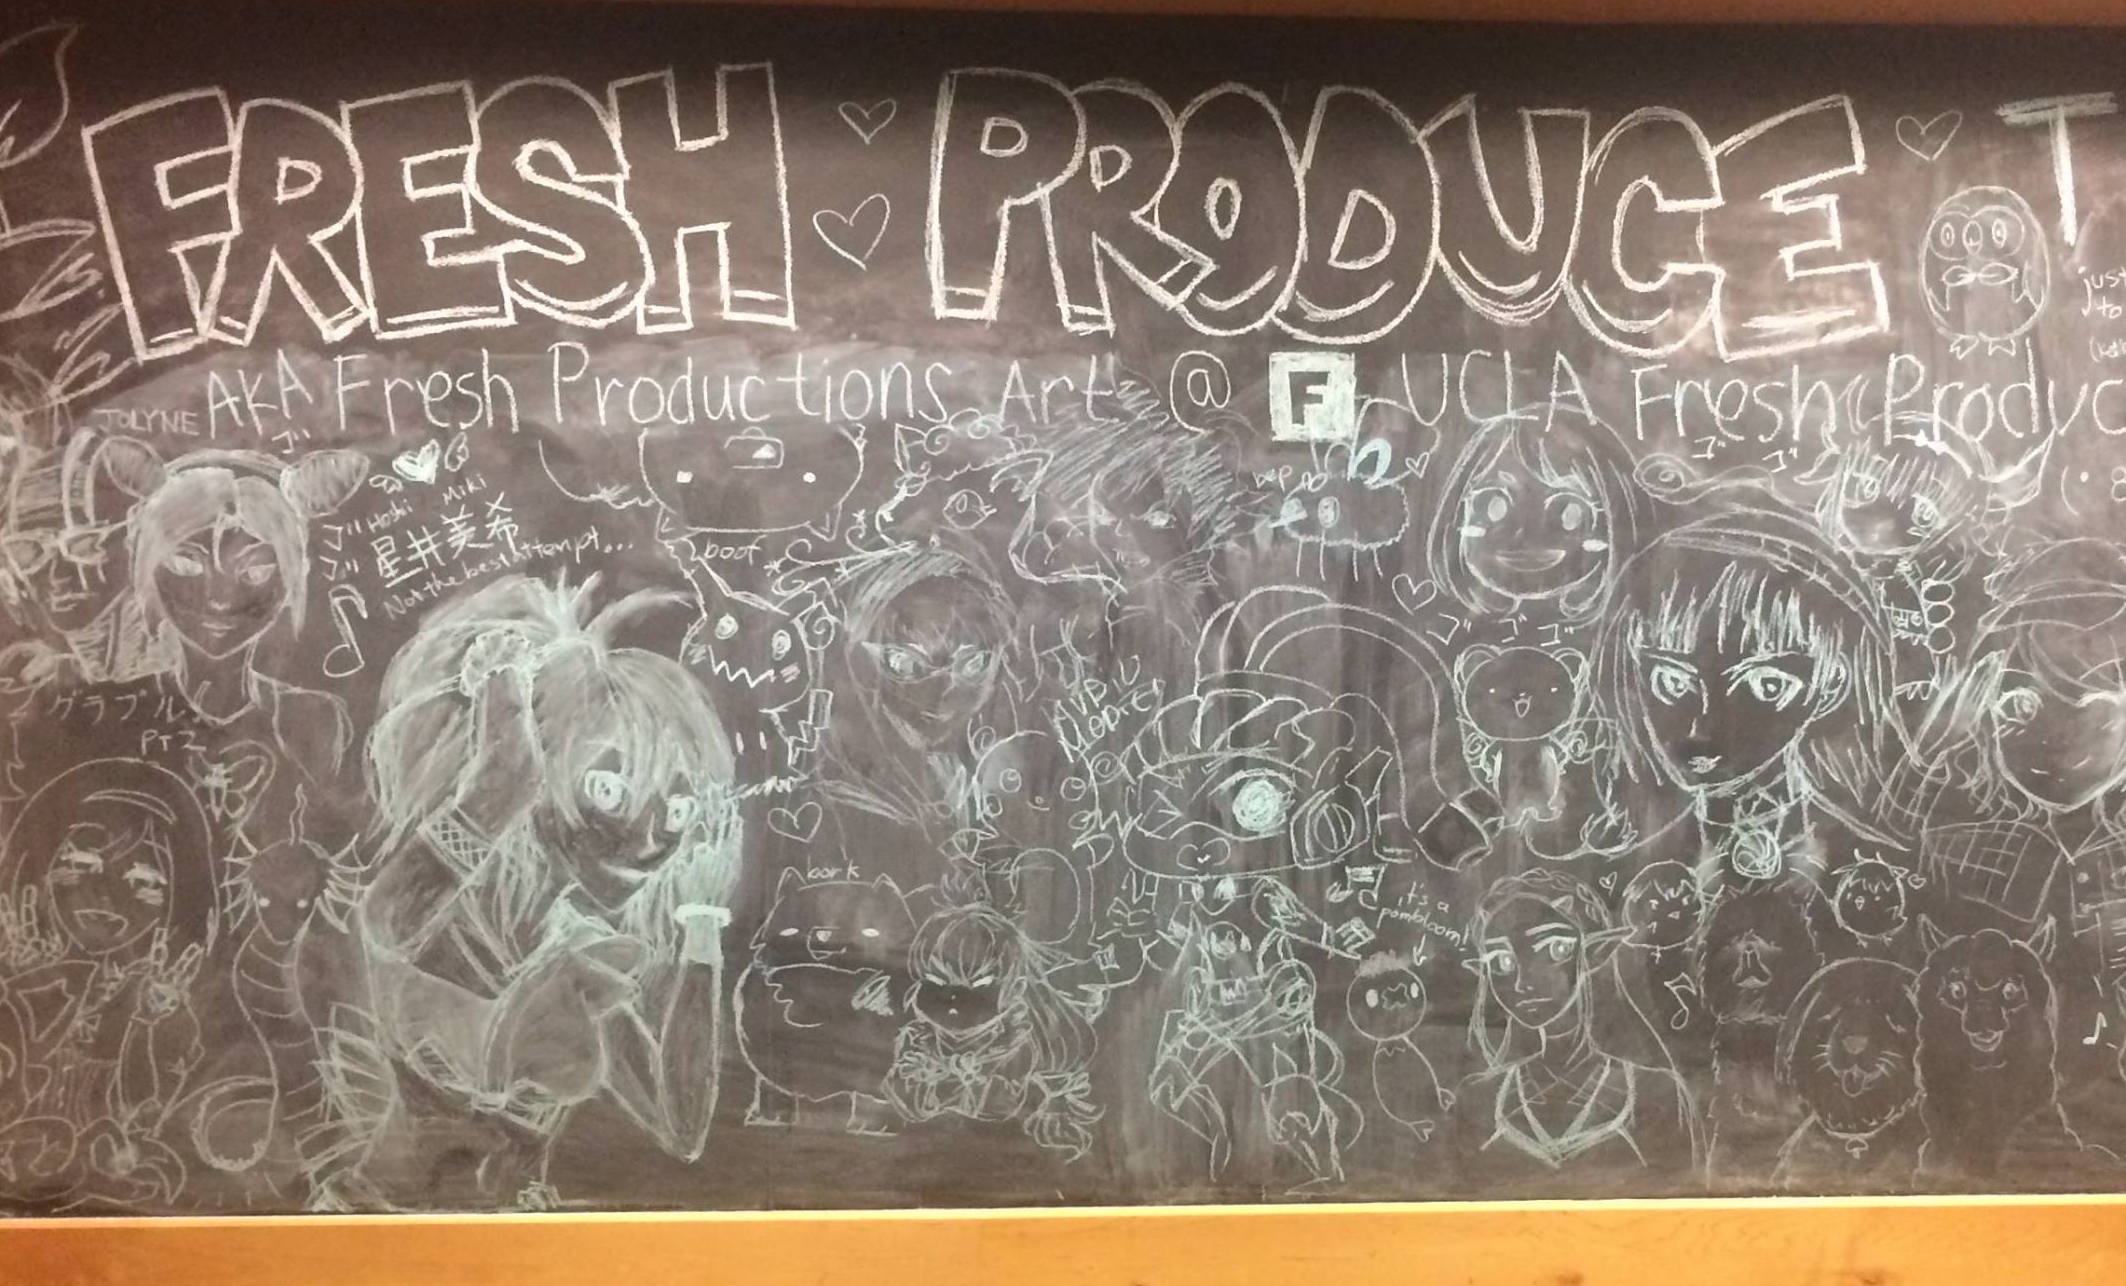 FRESH PRODUCE T
AKA Fresh Productions Art @ F UCLA Fresh Produc
JOLYNE
ゴ
Hoshi Miki
星井美希
Not the best attempt...
boof
bep
ゴ ゴ
ゴ ゴ ゴ
グラブル
PT 2
bork
it's a
pombloom!
jus
to